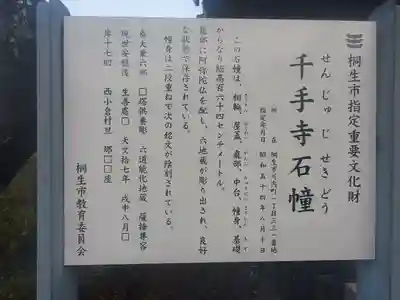 桐生市指定重要文化財
せんじゅじせきどう
千手寺石幢
所在 桐生市川内町一丁目三三一番地
指定年月日 昭和五十四年八月十日
この石幢は、相輪、屋蓋、龕部、中台、幢身、基礎
からなり総高百六十四センチメートル。
龕部に阿弥陀仏を配し、六地蔵が彫り出され、良好
な状態で保存されている。
幢身は二段重ねで次の銘文が陰刻されている。
奉大乗六部 □塔供養彫 六道能化地蔵 薩捶尊容
現世安穏後 生善処□ 天文十七年 戊申八月□
岸十七四 西小倉村旦 那□□屋
桐生市教育委員会